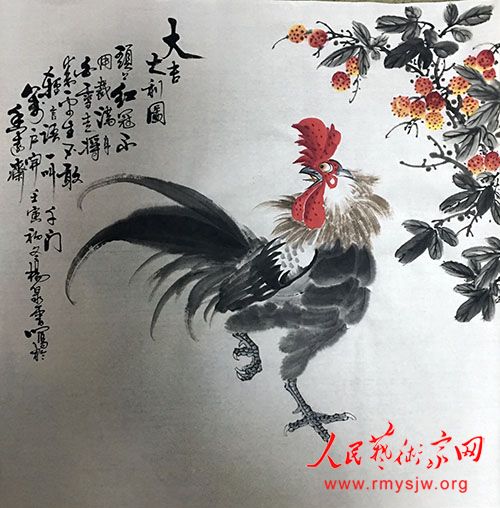 大吉
大利圖
頭上紅冠不
用裁滿身
白雪走將
來平生不敢
輕言語一叫
千門
萬戶開
壬寅初冬楊泉
寫於
齋
人民藝術家网
www.rmysjw.org